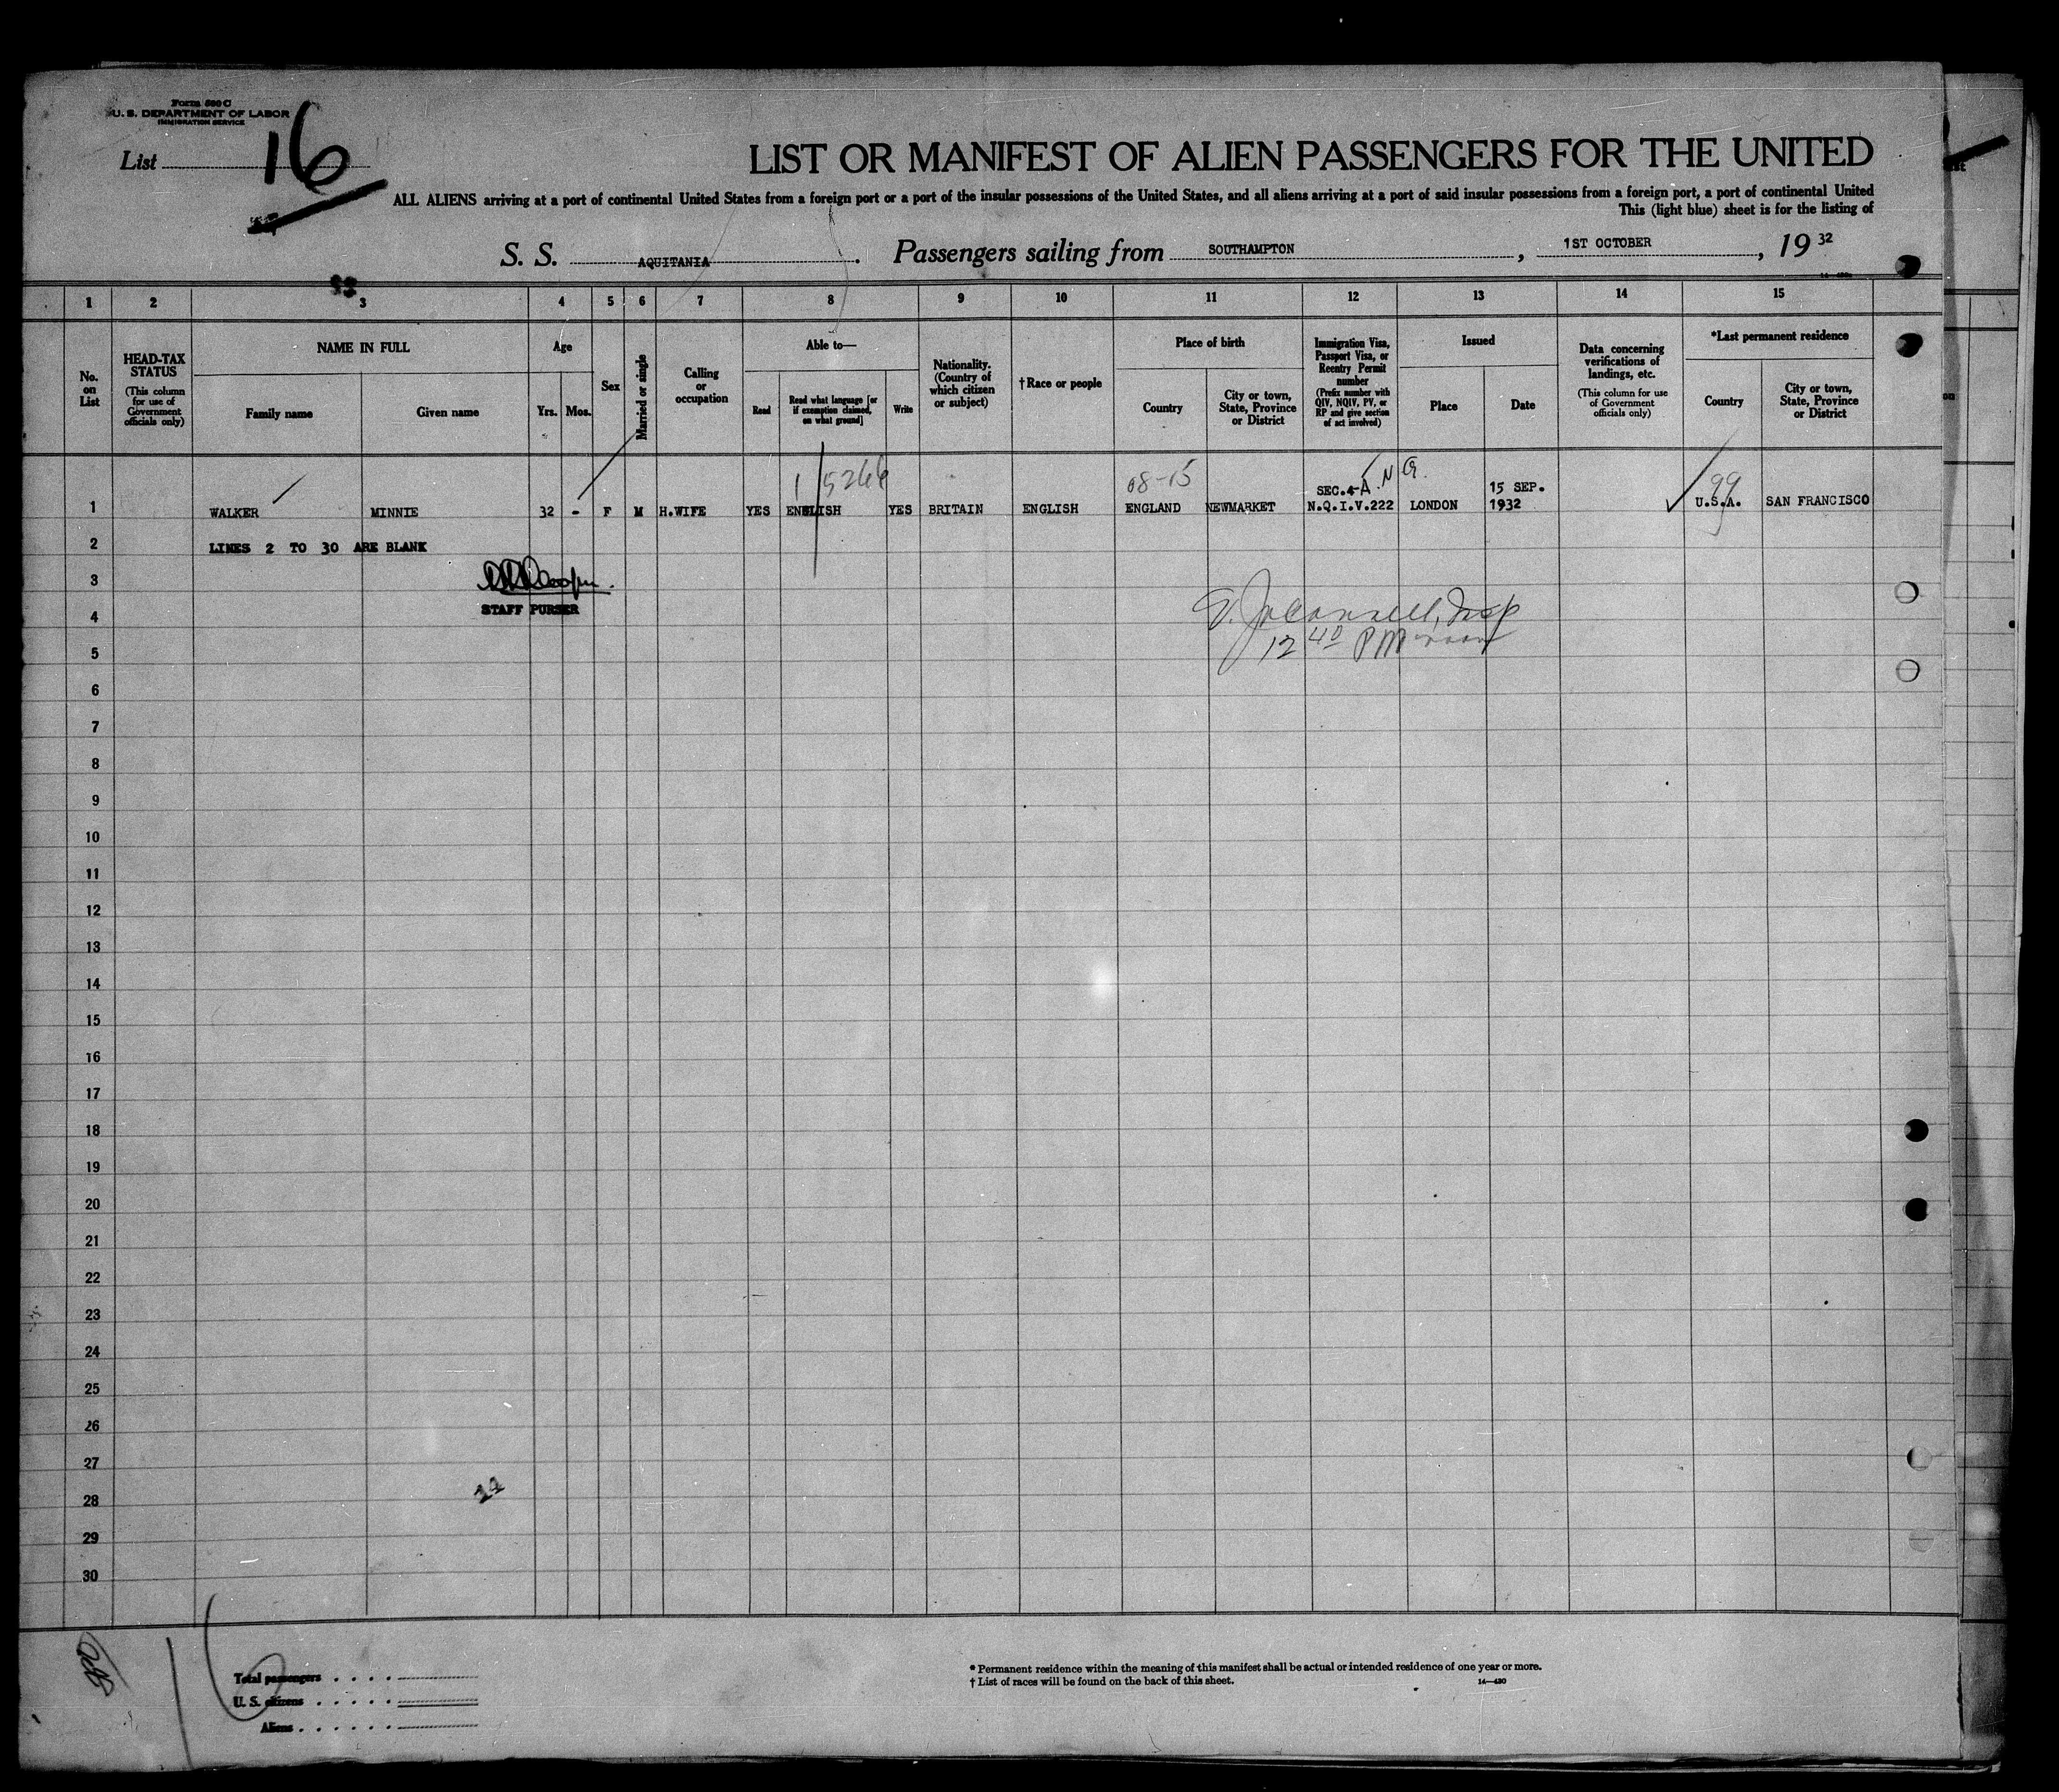 Form 500 C
U. S. DEPARTMENT OF LABOR
IMMIGRATION SERVICE
List 16
LIST OR MANIFEST OF ALIEN PASSENGERS FOR THE UNITED
ALL ALIENS arriving at a port of continental United States from a foreign port or a port of the insular possessions of the United States, and all aliens arriving at a port of said insular possessions from a foreign port, a port of continental United
This (light blue) sheet is for the listing of
S. S. AQUITANIA. Passengers sailing from SOUTHAMPTON, 1ST OCTOBER, 19 32
1 2 3 4 5 6 7 8 9 10 11 12 13 14 15
No. on List
HEAD-TAX STATUS
(This column for use of Government officials only)
NAME IN FULL
Family name
Given name
Age
Yrs.
Mos.
Sex
Married or single
Calling or occupation
Able to—
Read
Read what language [or if exemption claimed, on what ground]
Write
Nationality. (Country of which citizen or subject)
†Race or people
Place of birth
Country
City or town, State, Province or District
Immigration Visa, Passport Visa, or Reentry Permit number
(Prefix number with QIV, NQIV, PV, or RP and give section of act involved)
Issued
Place
Date
Data concerning verifications of landings, etc.
(This column for use of Government officials only)
*Last permanent residence
Country
City or town, State, Province or District
08-15
99
SEC.4-A. 15 SEP.
1 WALKER MINNIE 32 - F M H.WIFE YES ENGLISH YES BRITAIN ENGLISH ENGLAND NEWMARKET N.Q.I.V.222 LONDON 1932 U.S.A. SAN FRANCISCO
2 LINES 2 TO 30 ARE BLANK
3
STAFF PURSER
4
12 40 PM
5
6
7
8
9
10
11
12
13
14
15
16
17
18
19
20
21
22
23
24
25
26
27
28
29
30
Total passengers
U. S. citizens
Aliens
* Permanent residence within the meaning of this manifest shall be actual or intended residence of one year or more.
† List of races will be found on the back of this sheet.
14—430